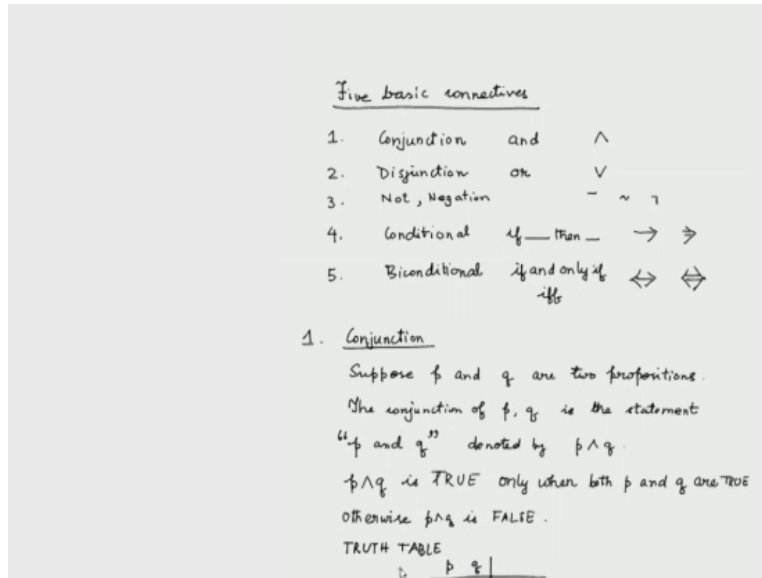 Five basic connectives
1. Conjunction and ∧
2. Disjunction or ∨
3. Not, Negation ‾ ~ ¬
4. Conditional if __ then __ → ⇒
5. Biconditional if and only if ↔ ⇔
iff
1. Conjunction
Suppose p and q are two propositions.
The conjunction of p, q is the statement
“p and q” denoted by p∧q.
p∧q is TRUE only when both p and q are TRUE
otherwise p∧q is FALSE.
TRUTH TABLE
p q